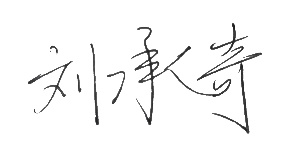 刘承奇